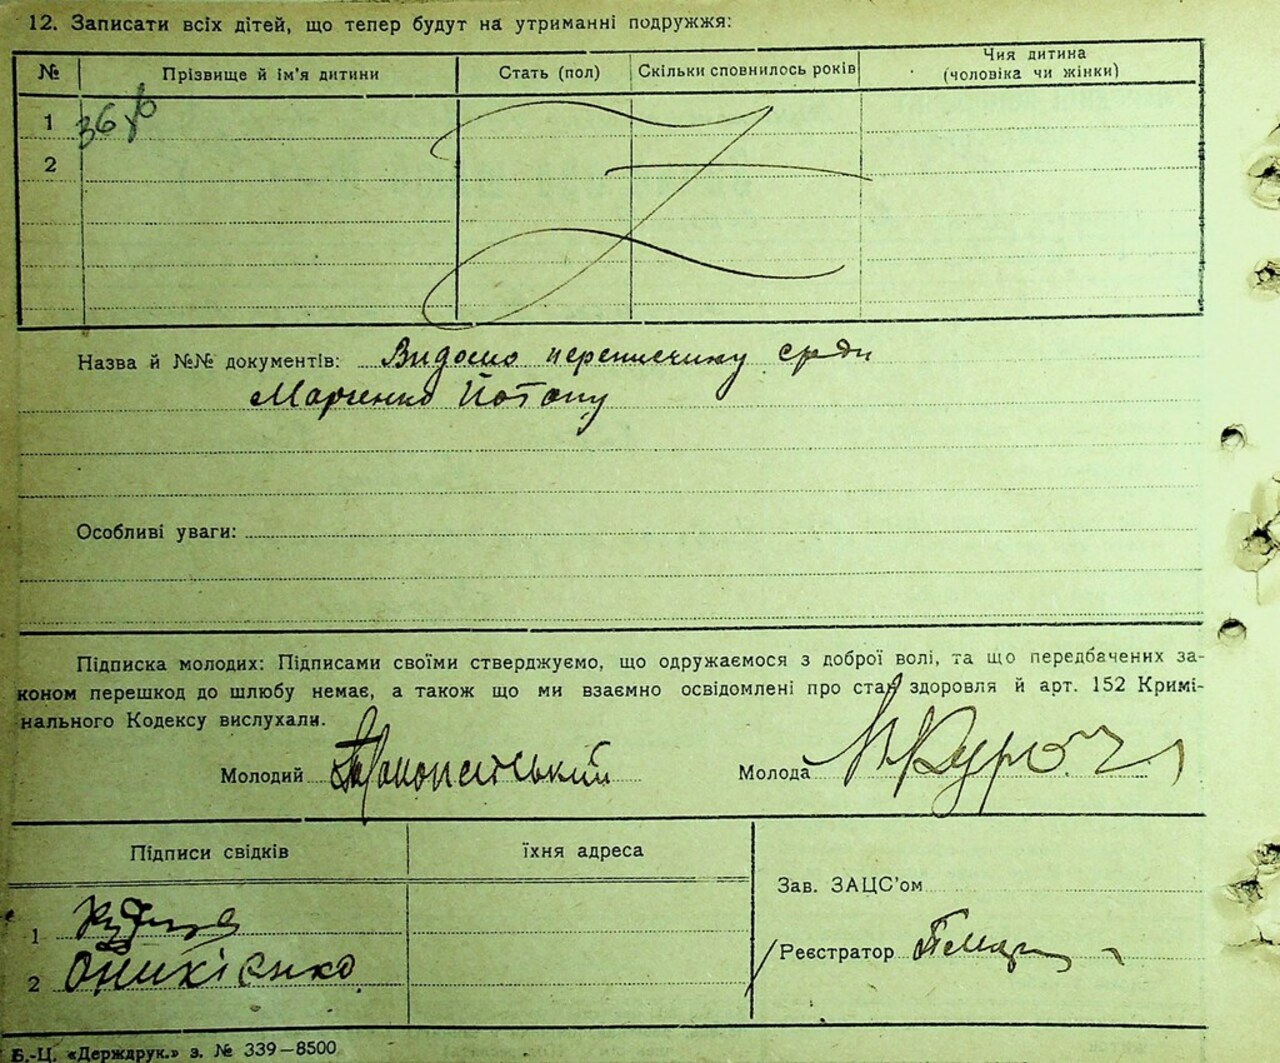 12. Записати всіх дітей, що тепер будут на утриманні подружжя:
№ Прізвище й ім'я дитини Стать (пол) Скільки сповнилось років Чия дитина (чоловіка чи жінки)
1
2
Назва й №№ документів:
Марченко Потапу
Особливі уваги:
Підписка молодих: Підписами своїми стверджуємо, що одружаємося з доброї волі, та що передбачених за-
коном перешкод до шлюбу немає, а також що ми взаємно освідомлені про стан здоровля й арт. 152 Кримі-
нального Кодексу вислухали.
Молодий Молода
Підписи свідків їхня адреса
Зав. ЗАЦС'ом
1
Реєстратор
2 Оникієнко
Б.-Ц. «Держдрук.» з. № 339—8500